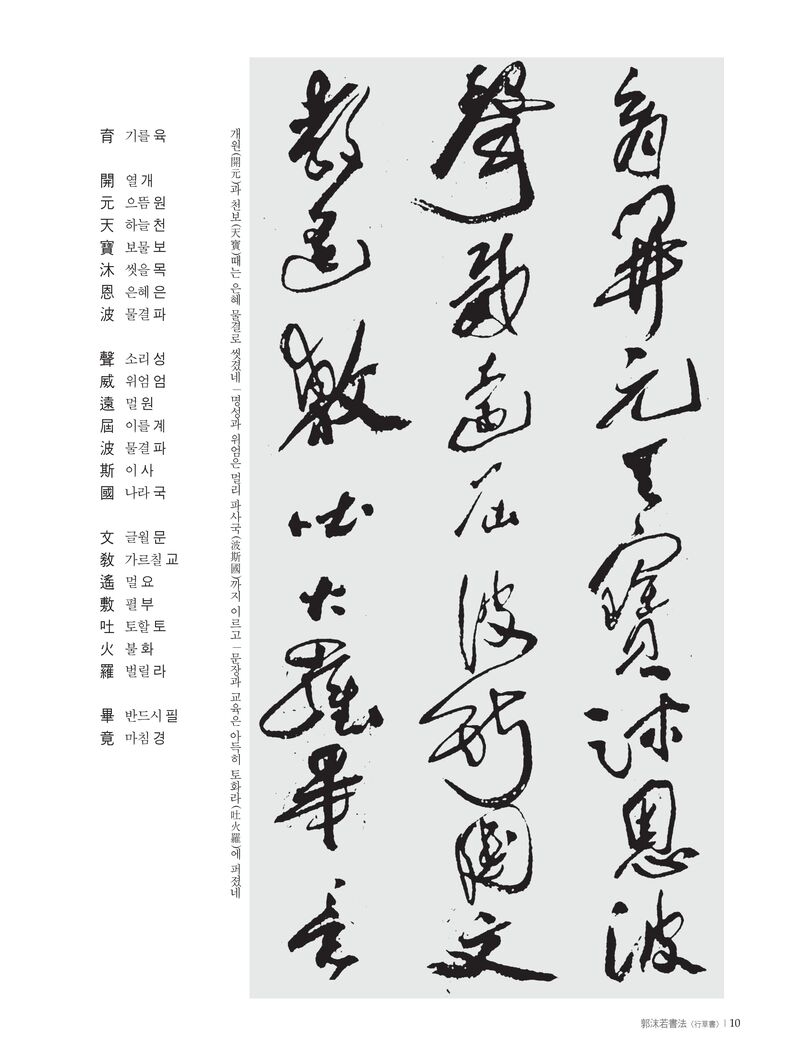 育開元天寶沐恩波
聲威遠屆波斯國文
敎遙敷吐火羅畢竟
개원(開元)과 천보(天寶)때는 은혜 물결로 씻겼네 ㅣ 명성과 위엄은 멀리 파사국(波斯國)까지 이르고 ㅣ 문장과 교육은 아득히 토화라(吐火羅)에 펴졌네
育 기를 육
開 열 개
元 으뜸 원
天 하늘 천
寶 보물 보
沐 씻을 목
恩 은혜 은
波 물결 파
聲 소리 성
威 위엄 엄
遠 멀 원
屆 이를 계
波 물결 파
斯 이 사
國 나라 국
文 글월 문
敎 가르칠 교
遙 멀 요
敷 펼 부
吐 토할 토
火 불 화
羅 벌릴 라
畢 반드시 필
竟 마침 경
郭沫若書法〈行草書〉 ㅣ 10